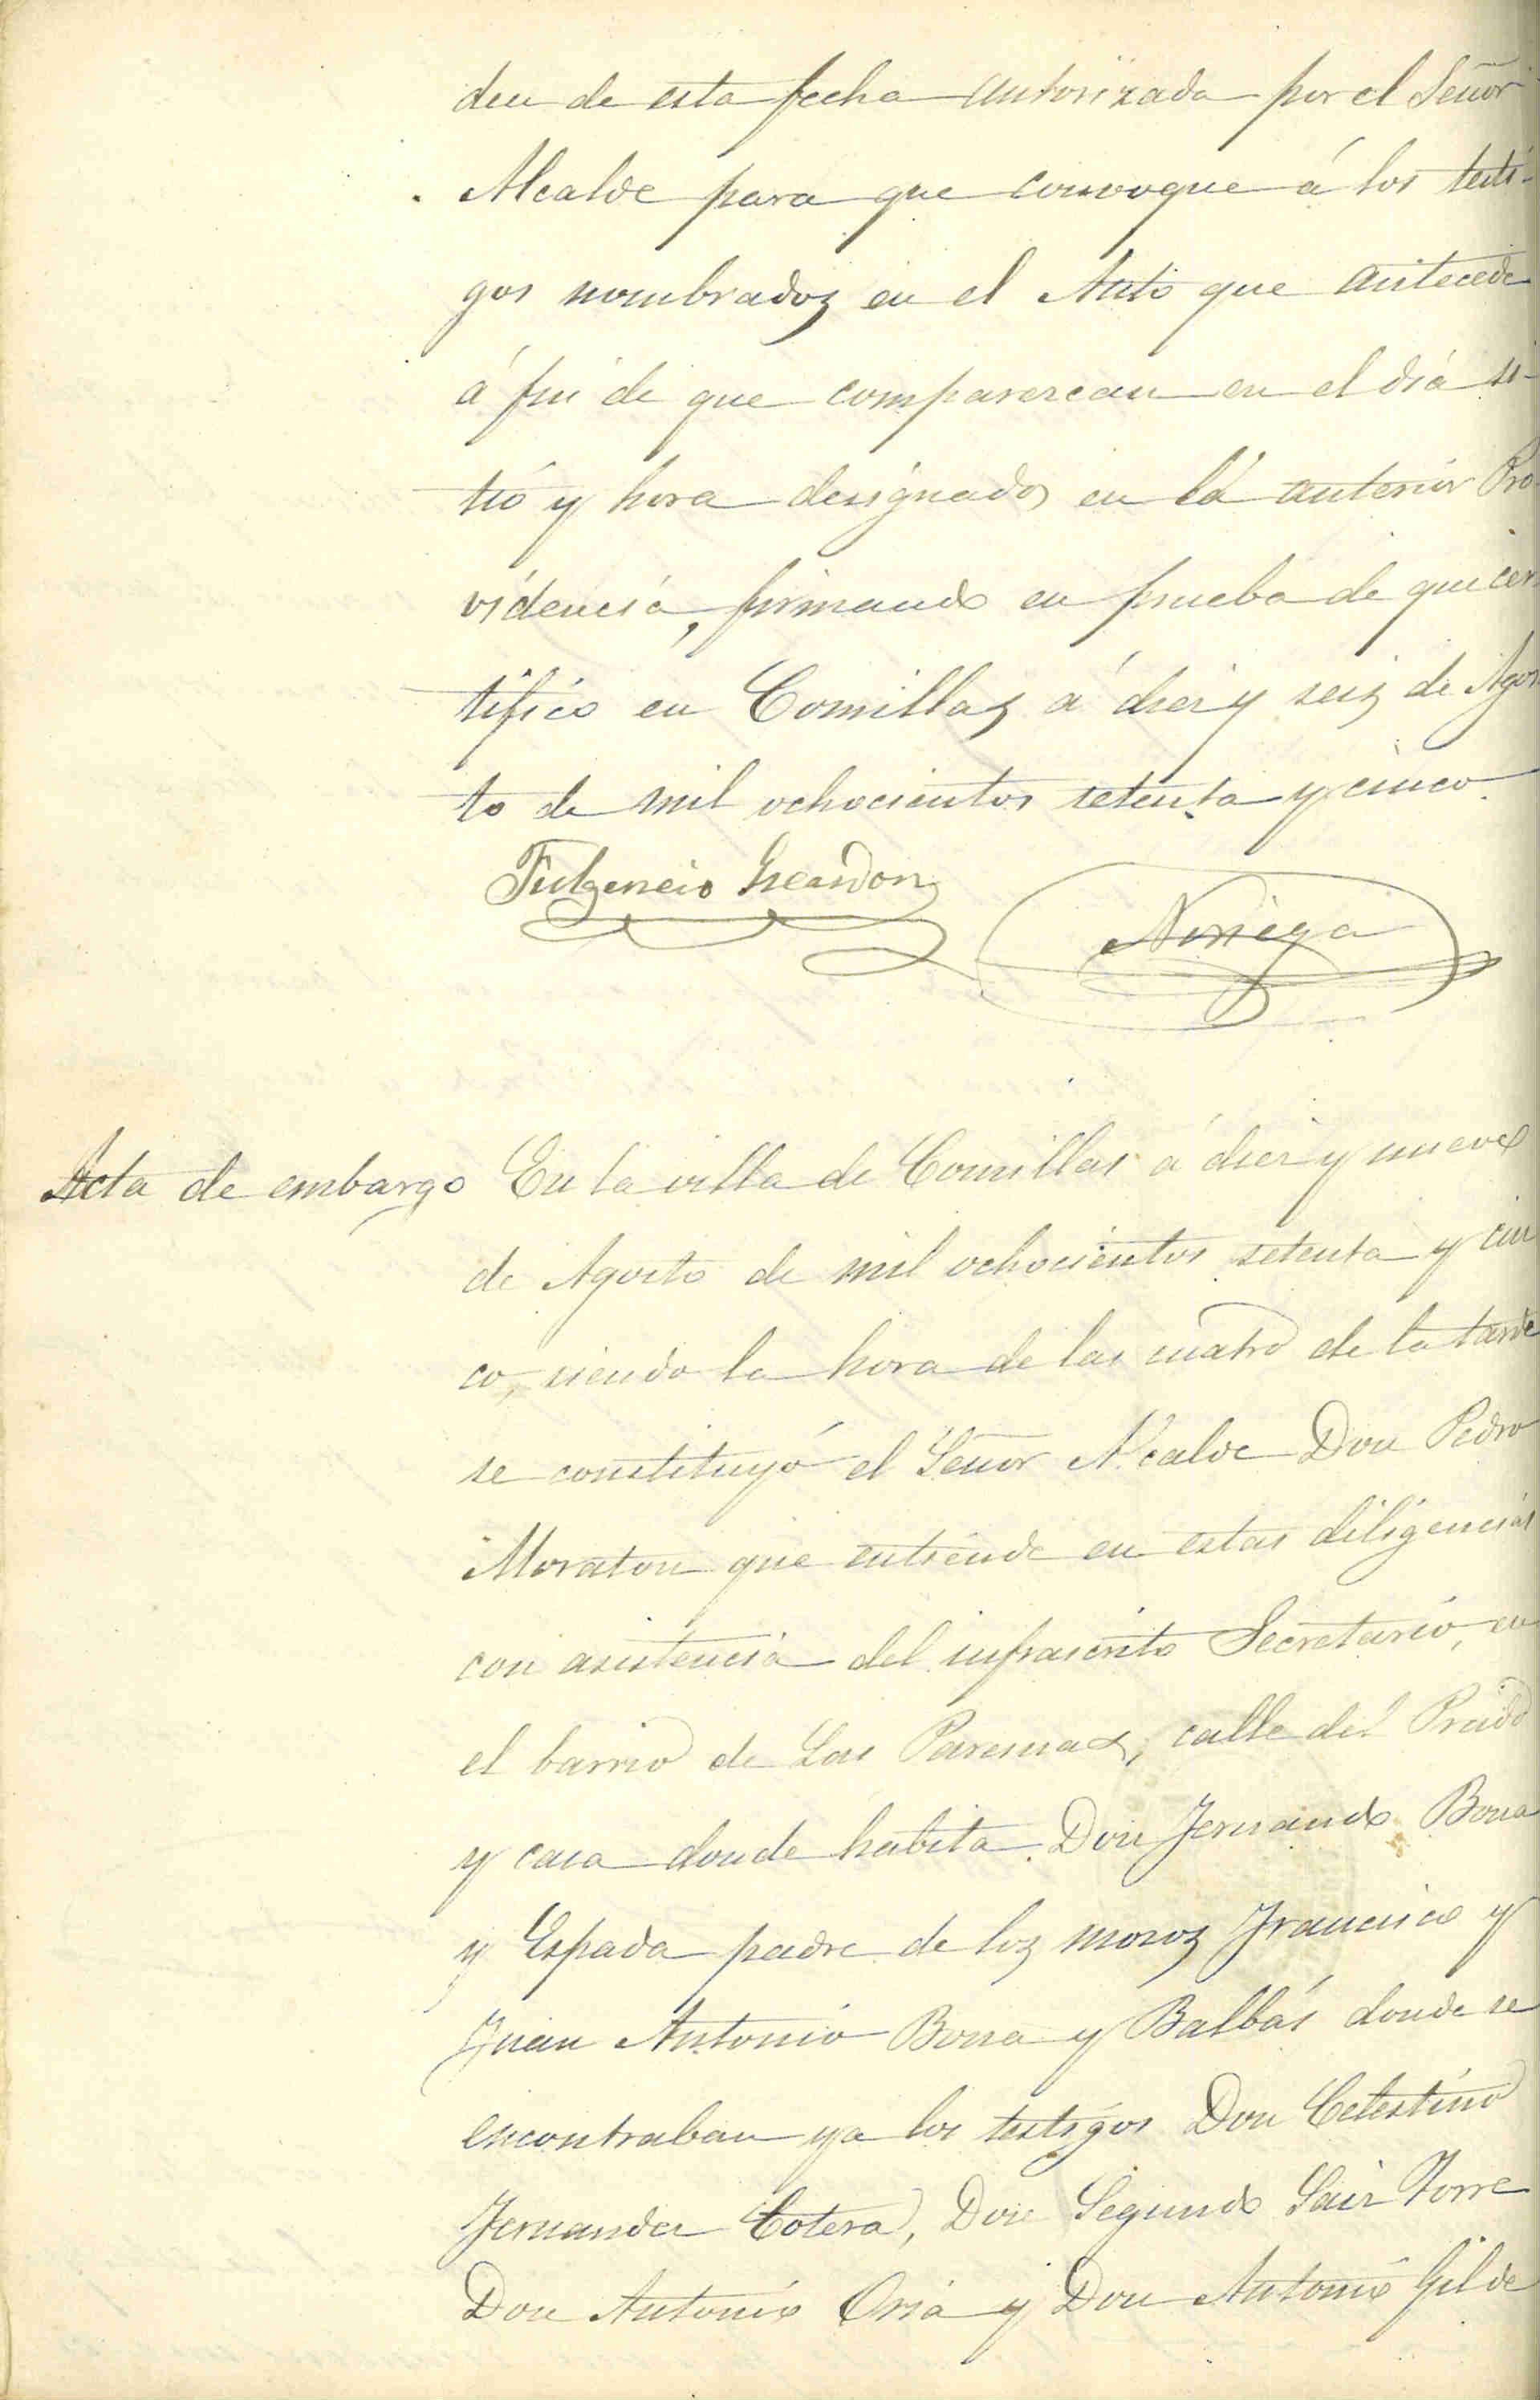 den de esta fecha autorizada por el Señor
Alcalde para que convoque á los testi-
gos nombrados en el Auto que antecede
á fin de que comparezcan en el dia si-
tio y hora designados en la anterior Pro
videncia, firmando en prueba de que cer
tifico en Comillas á diez y seis de Agos
to de mil ochocientos setenta y cinco.
Fulgencio
Noriega
Acta de embargo
En la villa de Comillas á diez y nueve
de Agosto de mil ochocientos setenta y cin
co, siendo la hora de las cuatro de la tarde
se constituyó el Señor Alcalde Don Pedro
Moraton que entiende en estas diligencias
con asistencia del infrascrito Secretario, en
el barrio de Las calle del Prado
y casa donde habita Don Fernando
y Espada padre de los mozos Francisco y
Juan Antonio y Balbás donde se
encontraban ya los testigos Don Celestino
Fernandez Cotera, Don Segundo Saiz Torre
Don Antonio Oria y Don Antonio Gil de